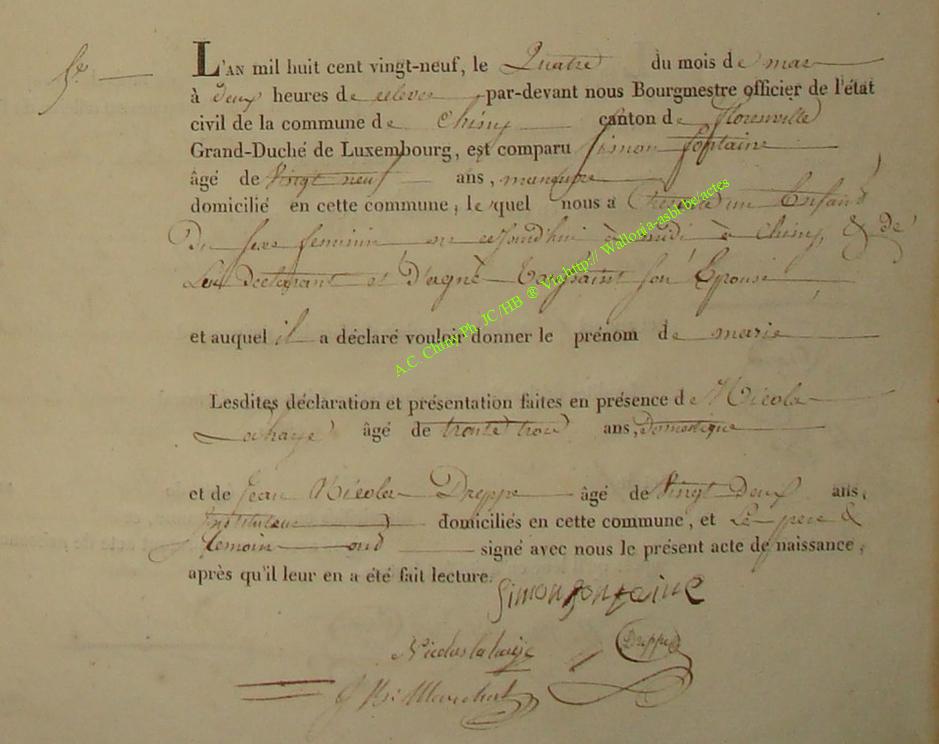 5e
L'AN mil huit cent vingt-neuf, le Quatre du mois de mar
à deux heures de relevée, par-devant nous Bourgmestre officier de l'état
civil de la commune de Chiny canton de florenville
Grand-Duché de Luxembourg, est comparu Simon fontaine
âgé de vingt neuf ans, manœuvre
domicilié en cette commune, lequel nous a Présenté un Enfant
Du sexe feminin né cejourd'hui à midi à Chiny, & de
Lui Déclarant et D'agnè Toussaint son Epouse
et auquel il a déclaré vouloir donner le prénom de marie
Lesdites déclaration et présentation faites en présence de Nicola
Lahaye âgé de trente trois ans, Domestique
et de Jean Nicola Dreppe âgé de Vingt Deux ans,
Instituteur domiciliés en cette commune, et Le père &
temoin ond signé avec nous le présent acte de naissance,
après qu'il leur en a été fait lecture.
Simon fontaine
Nicolas lahaije Dreppe
A.C. Chiny Ph JC/HB ® Via http:// Wallonia-asbl.be/actes